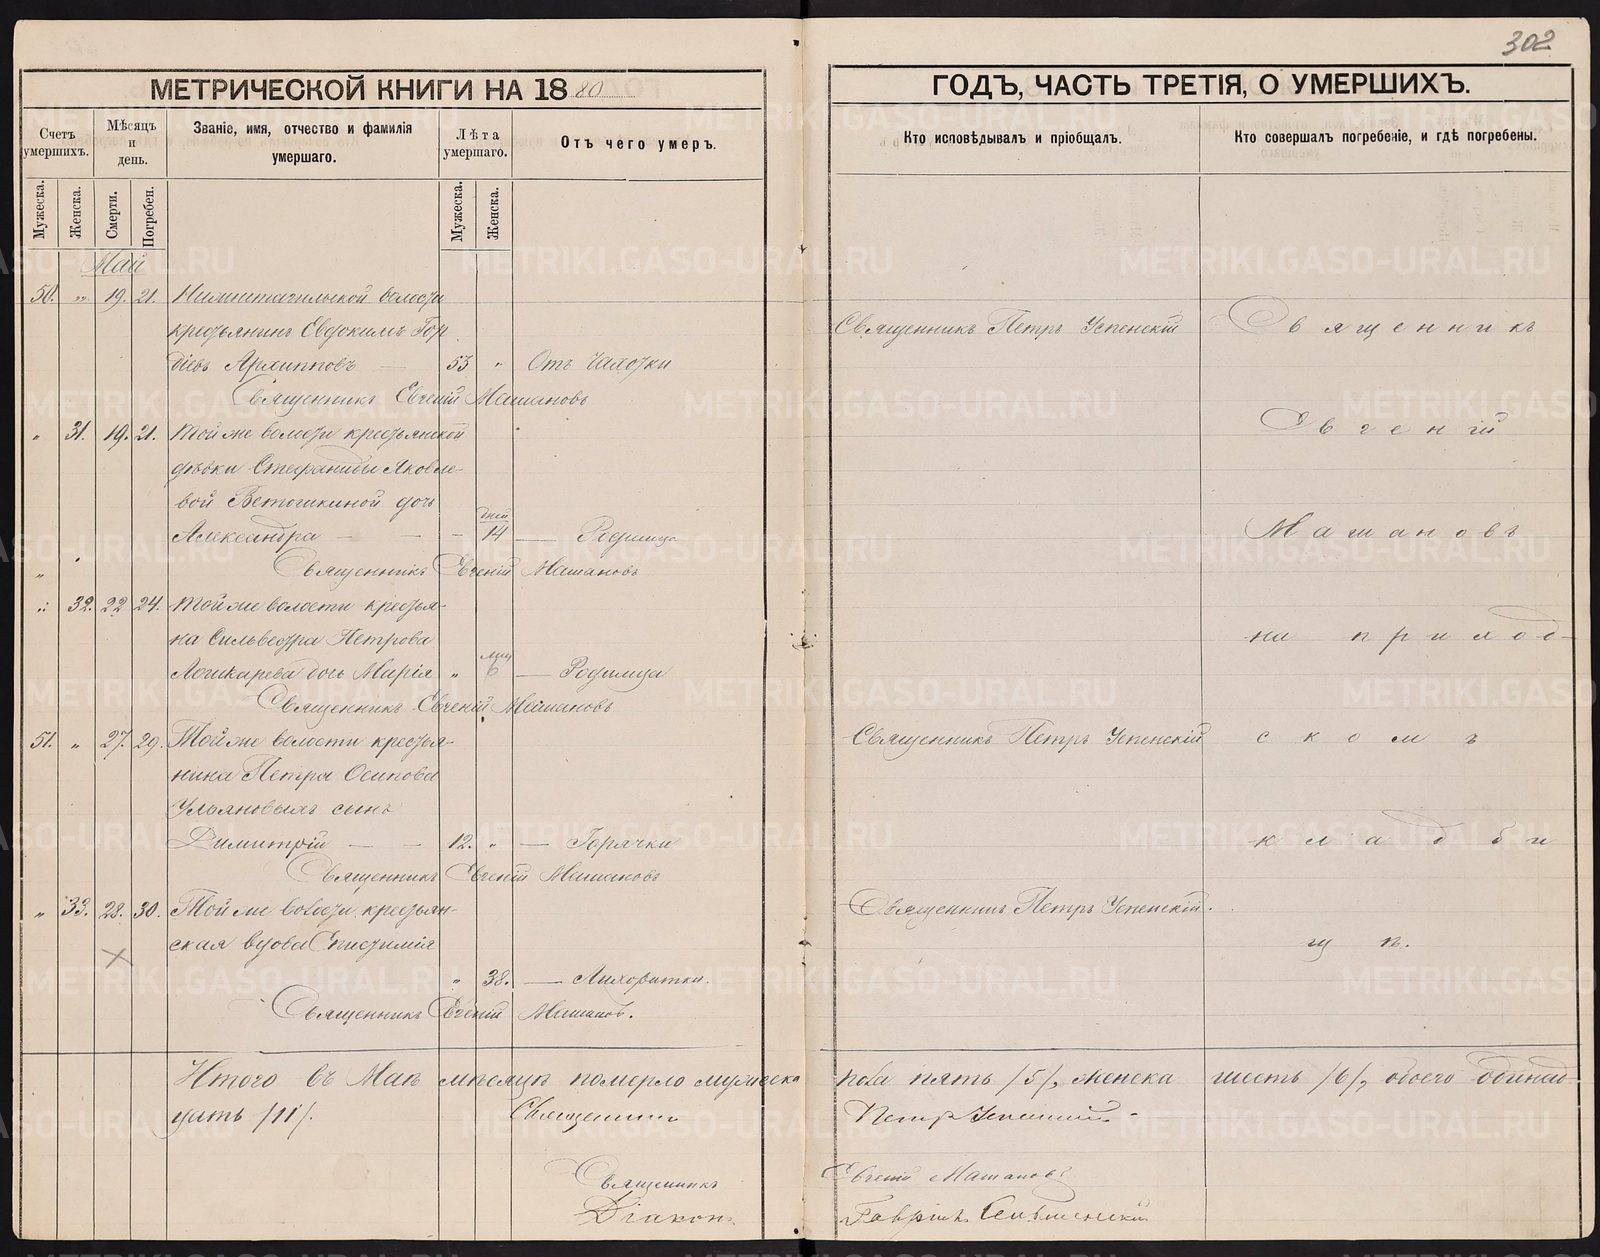 302
МЕТРИЧЕСКОЙ КНИГИ НА 1880
ГОДЪ, ЧАСТЬ ТРЕТІЯ, О УМЕРШИХЪ.
Счетъ умершихъ.
Мѣсяцъ и день.
Званіе, имя, отчество и фамилія умершаго.
Лѣта умершаго.
Отъ чего умеръ.
Кто исповѣдывалъ и пріобщалъ.
Кто совершалъ погребеніе, и гдѣ погребены.
Мужеска.
Женска.
Смерти.
Погребен.
Мужеска.
Женска.
Май
50. " 19. 21. Нижнетагильской волости
крестьянинъ Евдокимъ Гор
діевъ Архипповъ — 53 " Отъ Чахотки
Священникъ Петръ Успенскій
Священникъ
Священникъ Евгеній Машановъ
" 31. 19. 21. Той же волости крестьянской
дѣвки Стефаниды Яковле-
вой Ветошкиной дочь
Александра — — — дней 14 — Родимца
Евгеній
Священникъ Евгеній Машановъ
Машановъ
" 32. 22 24. Той же волости крестья-
на Сильвестра Петрова
дочь Марія " 6 — Родимца
на приход-
Священникъ Евгеній Машановъ
51. " 27. 29. Той же волости крестья-
нина Петра Осипова
Ульяновыхъ сынъ
Димитрій — — 12. " — Горячки
Священникъ Петръ Успенскій
скомъ
Священникъ Евгеній Машановъ
кладби
" 33. 28. 30. Той же волости крестьян-
ская вдова Епистимія
" 38. — Лихорадки.
Священникъ Петръ Успенскій.
щѣ.
Священникъ Евгеній Машановъ.
Итого въ Маѣ мѣсяцѣ померло мужеска пола пять /5/, женска шесть /6/, обоего одинад-
цать /11/. Священникъ Петръ Успенскій
Священникъ Евгеній Машановъ
Діаконъ Гавріилъ
METRIKI.GASO-URAL.RU